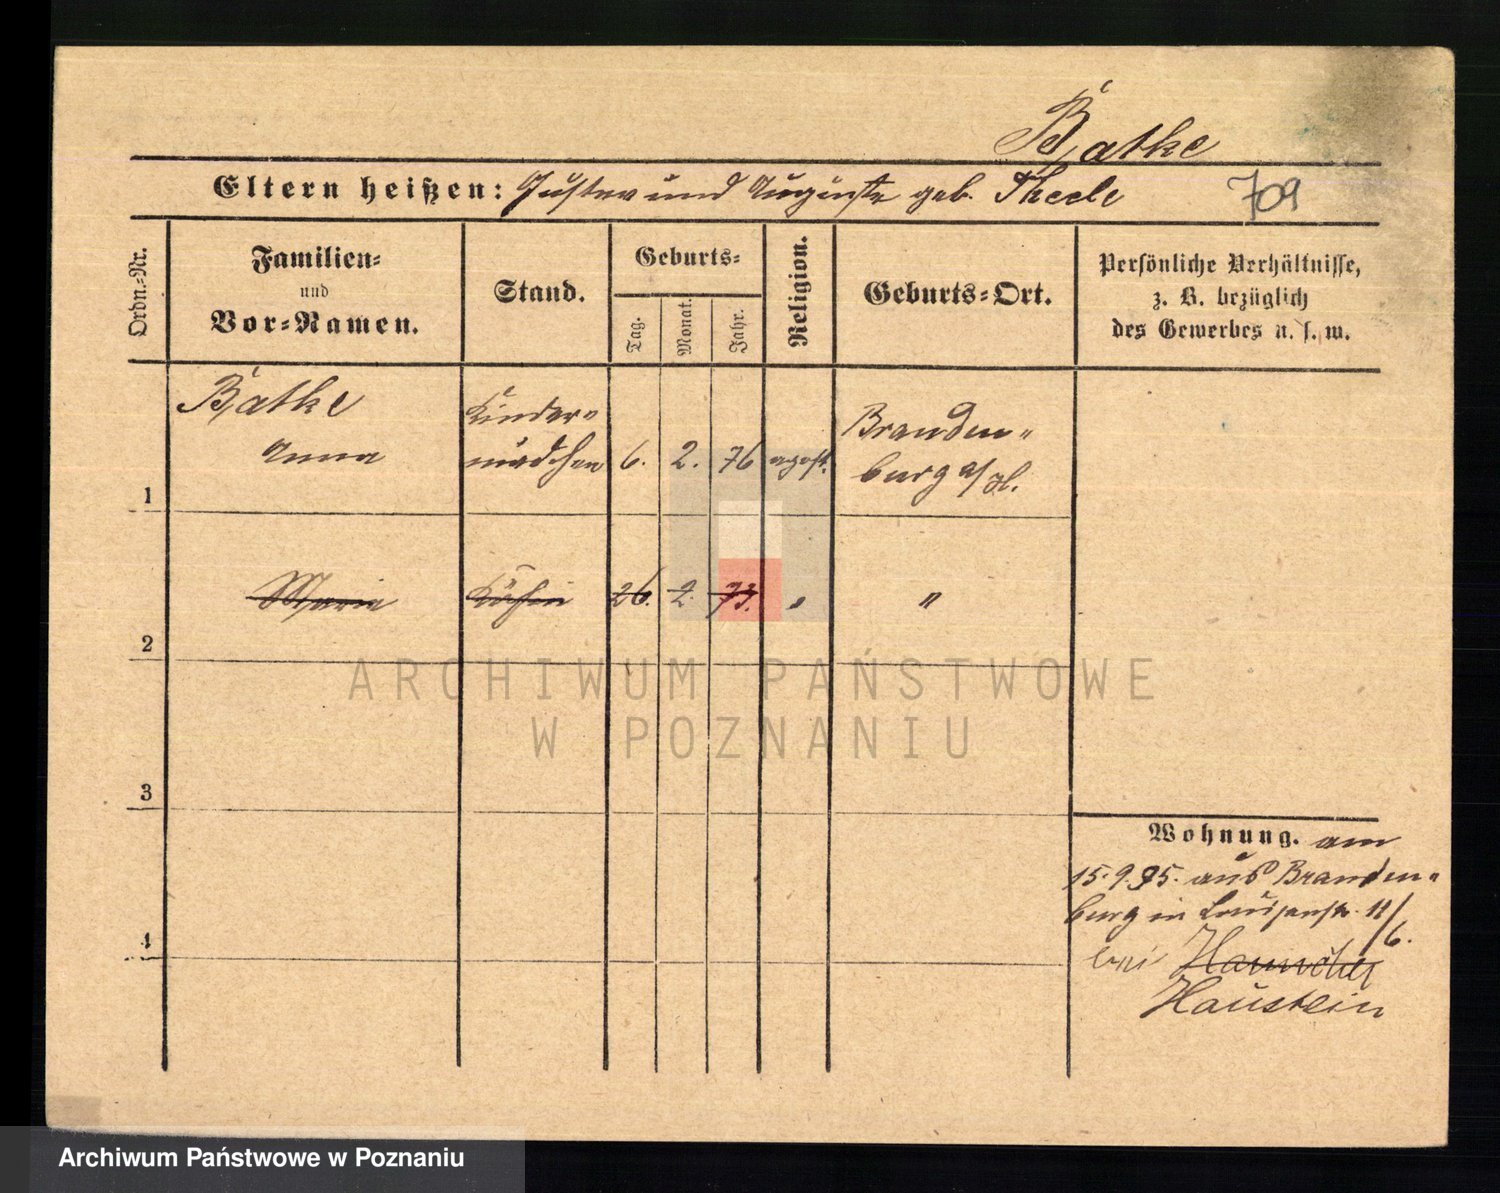 Bathe
Eltern heißen: Gustav und Auguste geb. Theele
709
Ordn.=Nr.
Familien=
und
Vor=Namen.
Stand.
Geburts=
Tag.
Monat.
Jahr.
Religion.
Geburts=Ort.
Persönliche Verhältnisse,
z. B. bezüglich
des Gewerbes u. s. w.
1
Bathe
Anna
Kinder=
mädchen
6. 2. 76
Branden=
burg a/H.
2
Marie
Köchin
26. 2. 73.
"
"
3
4
Wohnung. am
15.9.95. aus Branden=
burg in Louisenstr. 11/
6.
bei
Haustein
ARCHIWUM PAŃSTWOWE
W POZNANIU
Archiwum Państwowe w Poznaniu